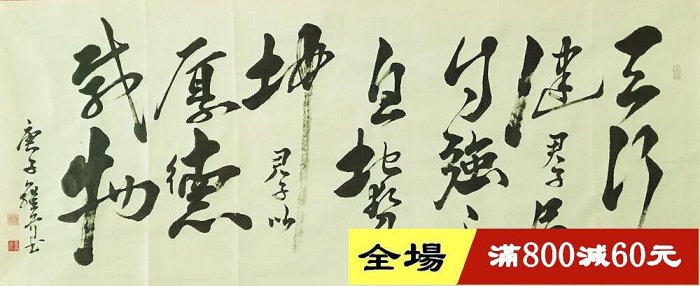 天行
健
君子以
自強不
息地勢
坤
君子以
厚德
載物
庚子
全場
滿800減60元